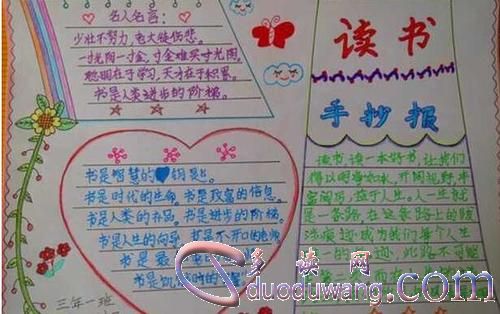 名人名言：
少壮不努力，老大徒伤悲。
一寸光阴一寸金，寸金难买寸光阴。
聪明在于学习，天才在于积累。
书是人类进步的阶梯。
读书
手抄报
书是智慧的钥匙。
书是时代的生命。书是致富的信息。
书是人类的。书是进步的阶梯。
书是人生的向导。书是不开口的老师
书是
书是饥饿时的
读书，读一本好书，让我们
得以明净如水，开阔视野，丰
富阅历，益于人生。人一生就
是一条路，在这条路上的跋
涉痕迹成为我们每个人生
一的轨迹，此路不可能
三年一班
多读网
duoduwang.com